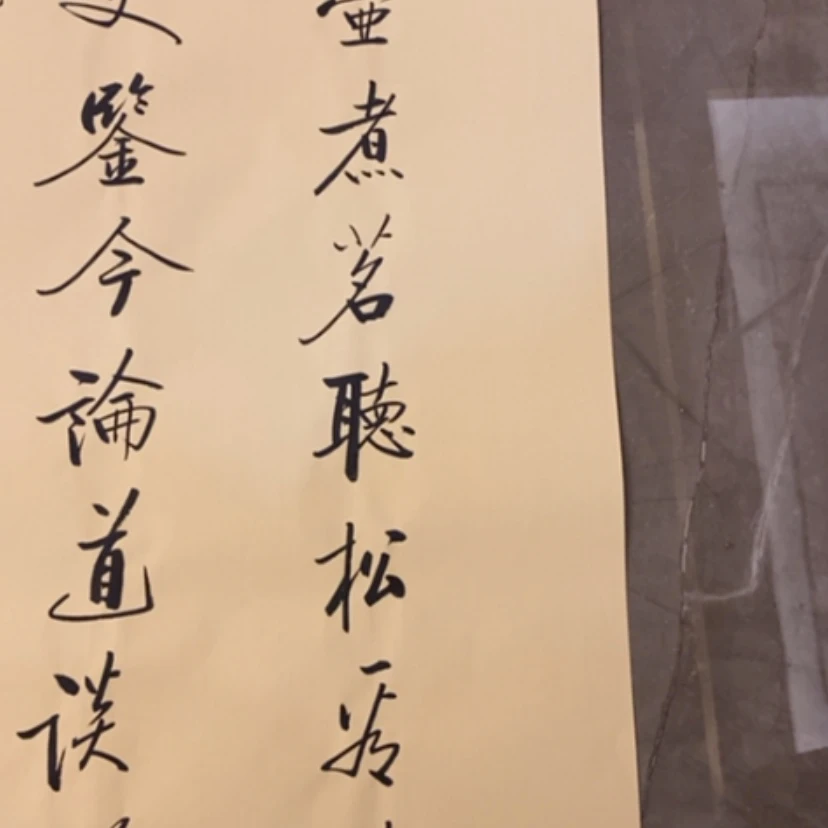 壺煮茗聽松
文鑒今論道談